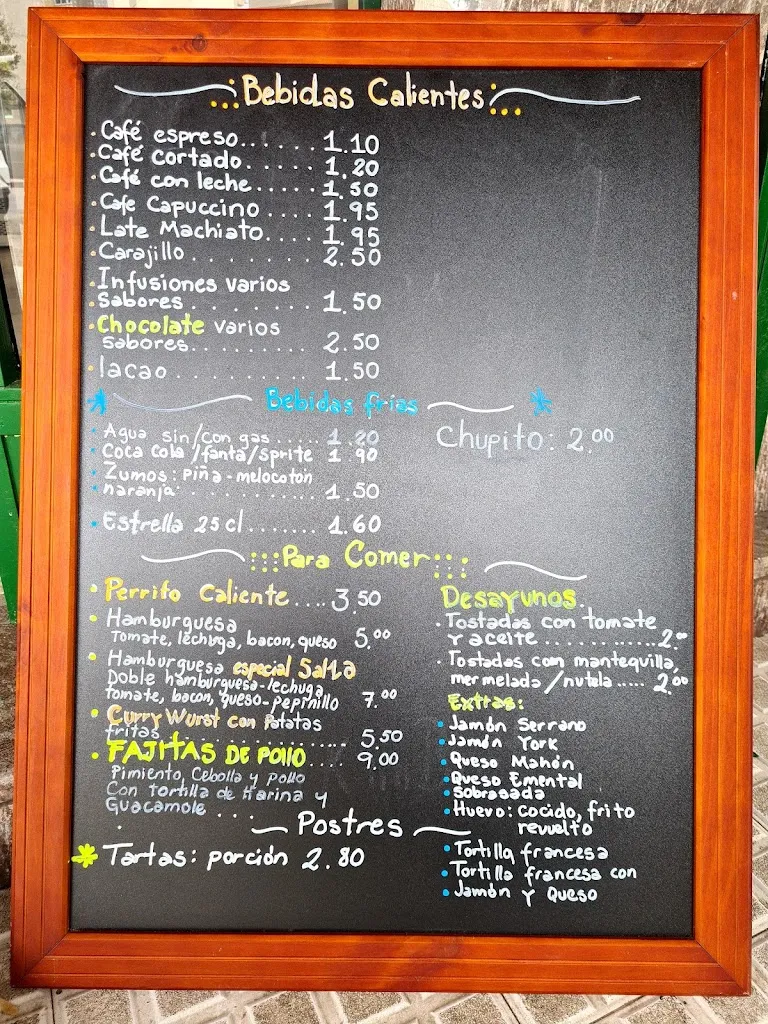 Bebidas Calientes
Café espreso...... 1.10
Café cortado...... 1.20
Café con leche..... 1.50
Cafe Capuccino.... 1.95
Late Machiato.... 1.95
Carajillo......... 2.50
Infusiones varios
Sabores......... 1.50
Chocolate varios
sabores......... 2.50
lacao.......... 1.50
Bebidas frias
Agua sin/con gas..... 1.20
Coca cola/fanta/sprite 1.90
Zumos: Piña-melocoton
naranja........... 1.50
Estrella 25 cl....... 1.60
Chupito: 2.00
Para Comer
Perrito Caliente.... 3.50
Hamburguesa
Tomate, lechuga, bacon, queso 5.00
Hamburguesa especial
Doble hamburguesa-lechuga
tomate, bacon, queso-pepinillo 7.00
Curry Wurst con Patatas
fritas................ 5.50
FAJITAS DE POllO.... 9.00
Pimiento, Cebolla y pollo
Con tortilla de Harina y
Guacamole....
Desayunos.
Tostadas con tomate
y aceite............ 2.00
Tostadas con mantequilla,
mermelada/nutela..... 2.00
Extras:
Jamón Serrano
Jamón York
Queso Mahón
Queso Emental
sobrasada
Huevo: cocido, frito
revuelto
Tortilla francesa
Tortilla francesa con
Jamón y Queso
Postres
Tartas: porción 2.80